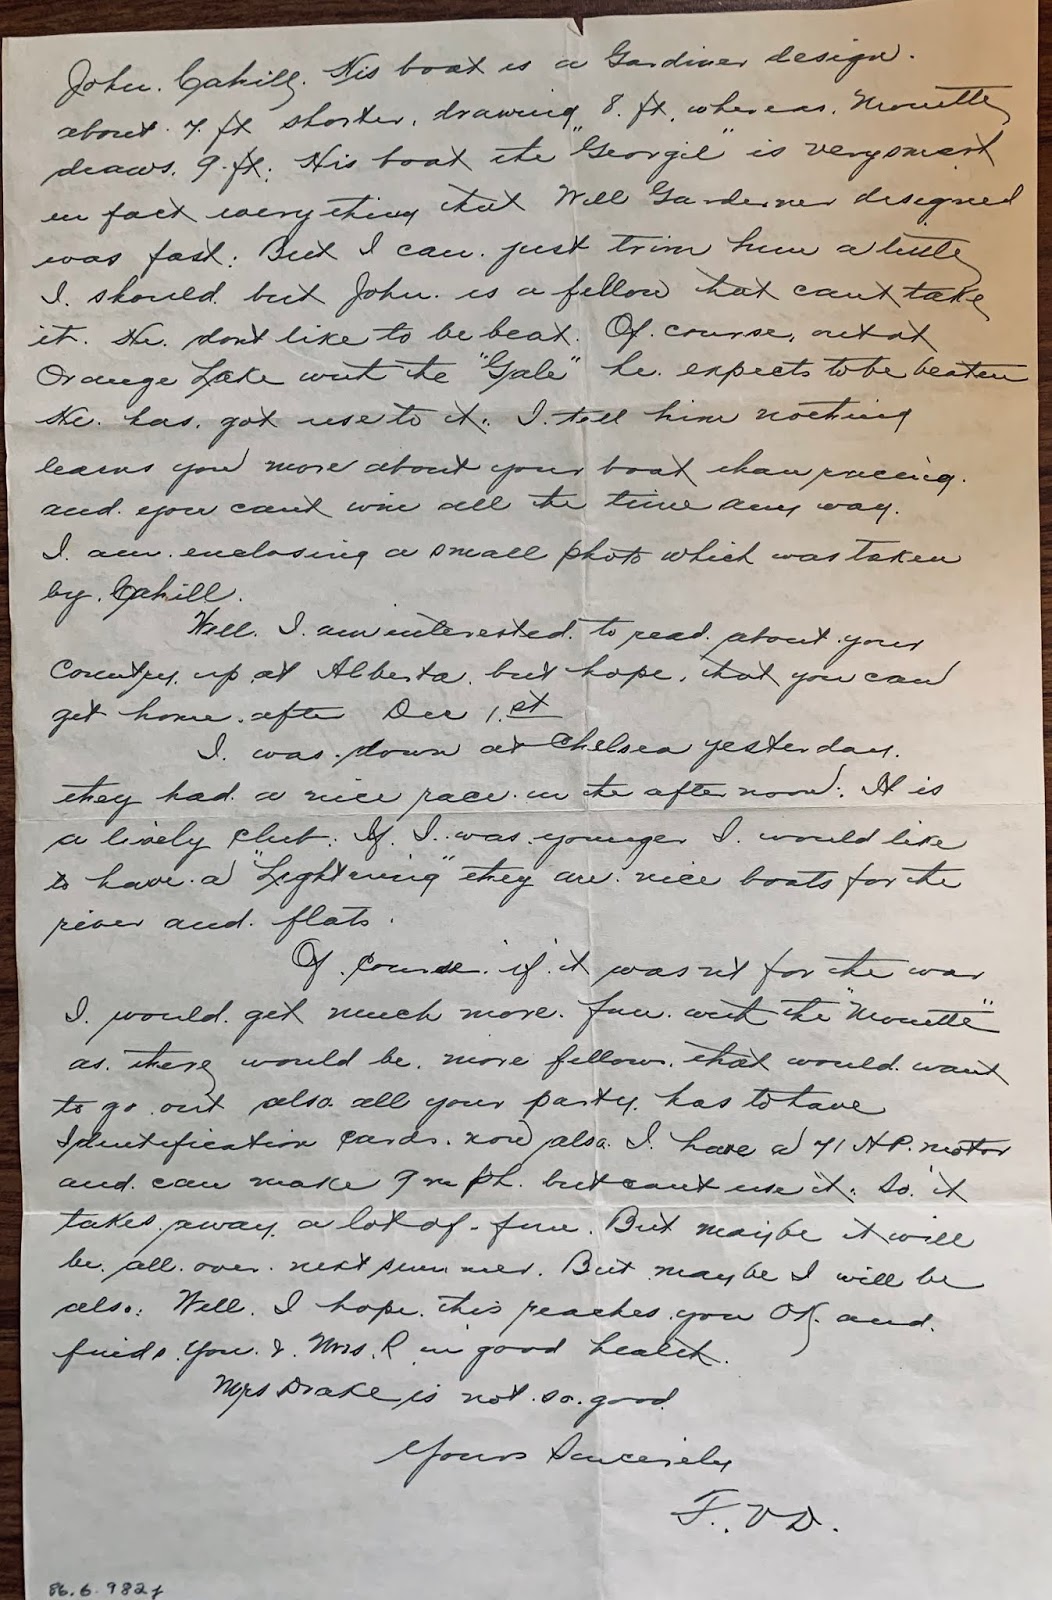 John. Cahill. His boat is a Gardiner design.
about. 7. ft shorter, drawing 8. ft, whereas. "Mouette"
draws. 9. ft; His boat the "Georgie" is very smart
in fact everything that Will Garderner designed
was fast: But I can. just trim him a little
I. should. but John. is a fellow that cant take
it. He. dont like to be beat. Of. course, out at
Orange Lake with the "Gale" he. expects to be beaten
He. has. got use to it: I. tell him nothing
learns you more about your boat than racing.
and. you cant win all the time any way.
I. am. enclosing a small photo which was taken
by. Cahill.
Well. I. am interested. to read. about. your
Country. up at Alberta. but hope. that you can
get home. after Dec 1.st
I. was. down at Chelsea yesterday.
they had. a nice race. in the afternoon: It is
a lively club: If. I. was. younger I. would like
to have. a "Lightning" they are. nice boats for the
river and. flats.
Of. Course. if it was nt for the war
I. would. get much more. fun. with the "Mouette"
as. there would be. more fellows. that would. want
to go. out also. all your party. has to have
Identification Cards. now also. I. have a 71 H.P. motor
and. can make 9 m ph. but cant use it: So. it
takes. away. a lot of. fun. But maybe it will
be. all. over. next summer. But maybe I will be
also: Well. I hope. this reaches. you OK. and.
finds. you. & Mrs. R in good health.
Mrs Drake is not. so. good
Yours Sincerely
F. V D.
86.6.982f